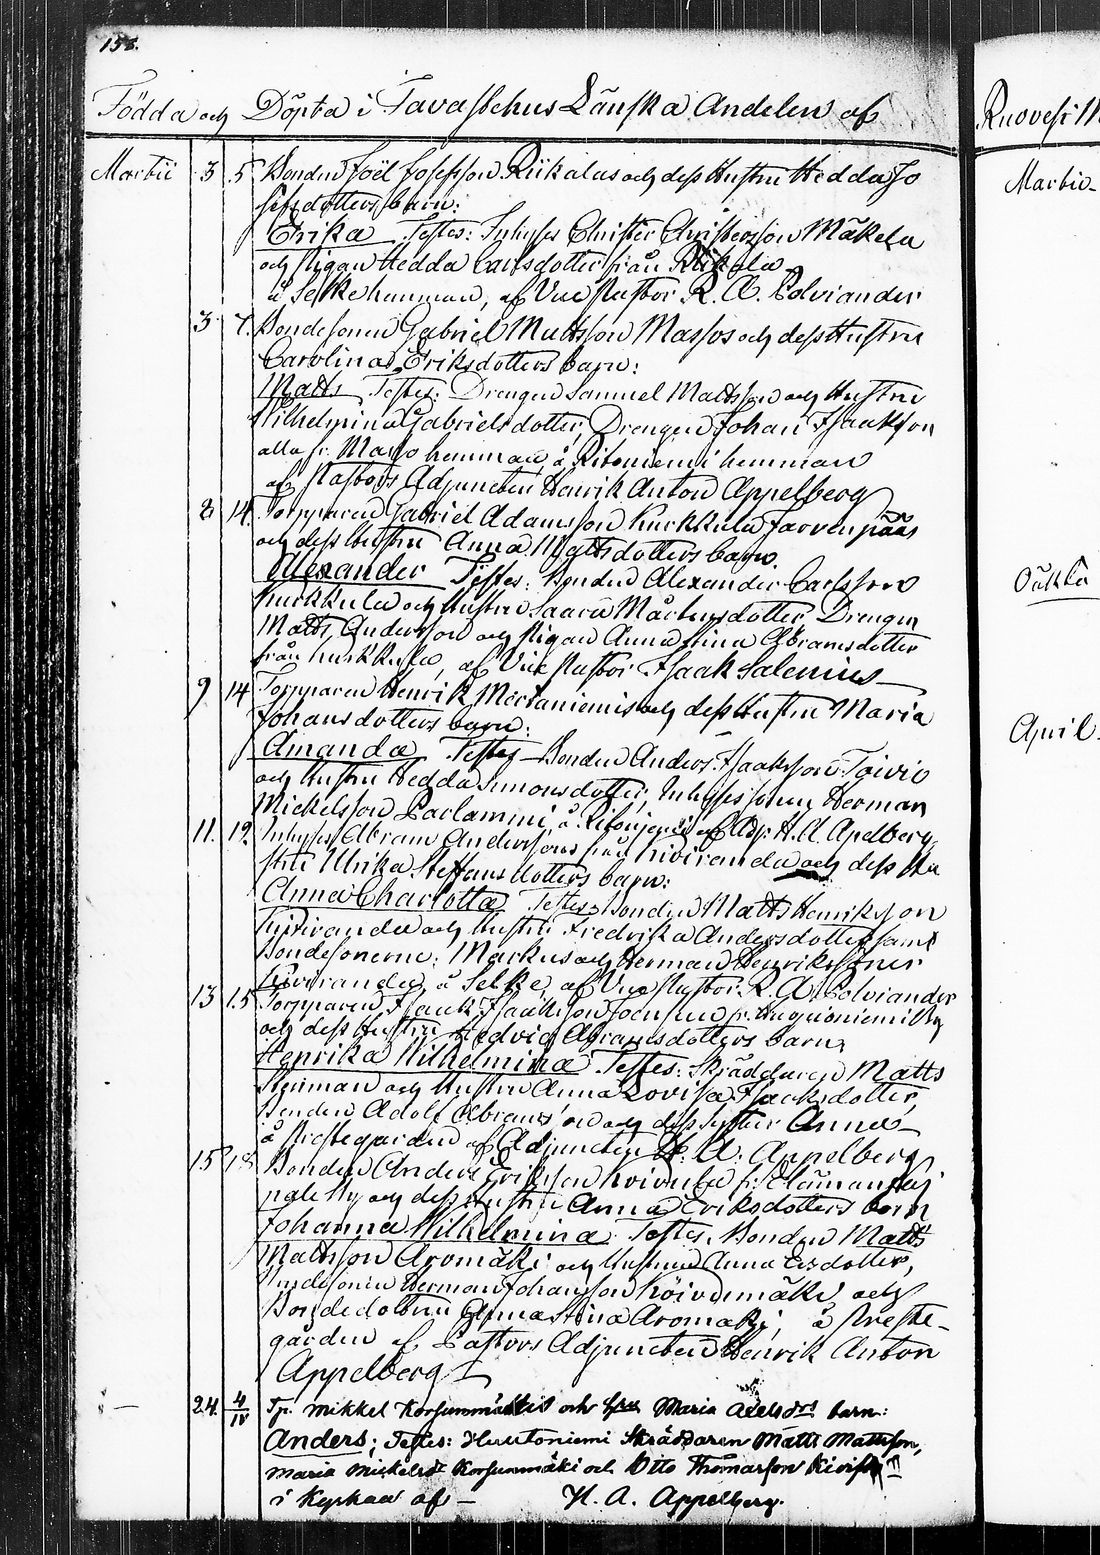 158.
Födda och Döpta i Tavastehus Länska Andelen af
Ruovesi
Martii 3 5 Bonden Joël Josephson Riikalas och dess Hustru Hedda Jo
sefsdotters barn:
Erika Testes: Inhyses Christer Christersson Mäkelä
och Pigan Hedda Carlsdotter från Riikala
å Selkee hemman, af Vice Pastor R. A. Polviander
3 7. Bondesonen Gabriel Mattsson Massos och dess Hustru
Carolina Eriksdotters barn:
Matts Testes: Drengen Samuel Mattsson och Hustru
Wilhelmina Gabrielsdotter, Drengen Johan Isaaksson
alla fr. Masso hemman, å Ritoniemi hemman
af Pastors Adjuncten Henrik Anton Appelberg
8 14. Torpparen Gabriel Adamsson Kurkkula Jarvenpääs
och dess Hustru Anna Mattsdotters barn.
Alexander Testes: Bonden Alexander Carlsson
Kurkkula och Hustru Saara Mårtensdotter, Drengen
Matts Andersson och Pigan Anna Stina Abramsdotter
från Kurkkula, af Vice Pastor Isaak Salenius
9 14 Torpparen Henrik Mertaniemis och dess Hustru Maria
Johansdotters barn:
Amanda Testes Bonden Anders Isaaksson Toivio
och Hustru Hedda Simonsdotter, Inhyses Herman
Mickelsson Parlammi å Ritoniemi af Adj. H. A. Apelberg
11. 19. Inhyses Abram Anderssons från Kiviranda och dess Hu
stru Ulrika Steffansdotters barn:
Anna Charlotta Testes: Bonden Matts Henriksson
Kiviranda och Hustru Fredrika Andersdotter samt
Bondesonerne: Markus och Herman Henrikssöner
Kiviranda, å Selkee, af Vice Pastor R. A. Polviander
13 15 Torpparen Isaak Isaaksson
och dess Hustru Hedvig Abramsdotters barn;
Henrika Wilhelmina Testes: Skräddaren Matts
och Hustru Anna Lovisa Isaaksdotter,
Bonden Adolf Abramsson och dess syster Anna
å Prestegården af Adjuncten H. A. Appelberg
15 18 Bonden Anders Eriksson
och dess Hustru Anna Eriksdotters barn
Johanna Wilhelmina Testes: Bonden Matts
Mattsson Aromäki och Hustrun Anna
Bondesonen Herman Johansson Koivumäki och
Bondedottren Anna Stina Aromäki, å Preste-
gården af Pastors Adjuncten Henrik Anton
Appelberg
24. 4/IV Tp. Mikkel Korsunmäkis och Hru Maria Axelsdrs barn:
Anders; Testes: Huutoniemi Skräddaren Matti Mattsson,
Maria Mickelsdr Korsunmäki och Otto Thomasson
i Kyrkan af – H. A. Appelberg.
Martii
April.